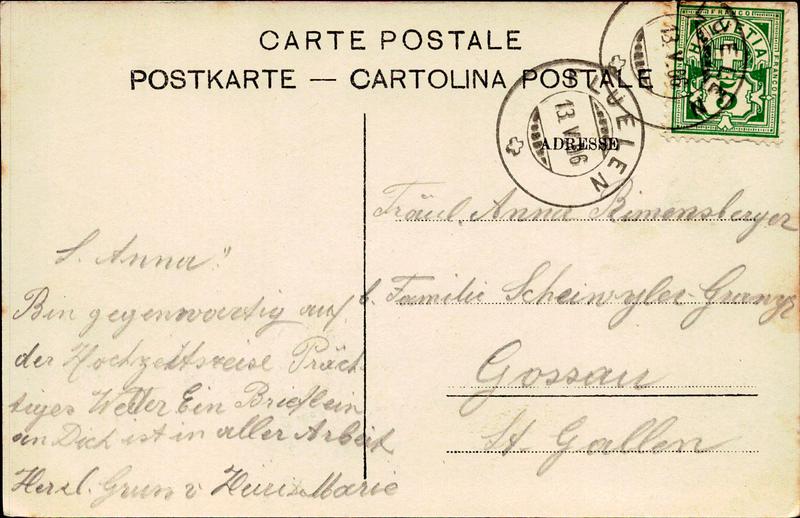 CARTE POSTALE
POSTKARTE — CARTOLINA POSTALE
FRANCO
HELVETIA
FRANCO
5
FLUELEN
13. V. 06
ADRESSE
L. Anna!
Bin gegenwärtig auf
der Hochzeitsreise Präch-
tiges Wetter Ein Brieflein
an Dich ist in aller Arbeit
Herzl. Gruss v Marie
Fräul. Anna Rimensberger
b. Familie Scheiwyler-
Gossau
St. Gallen